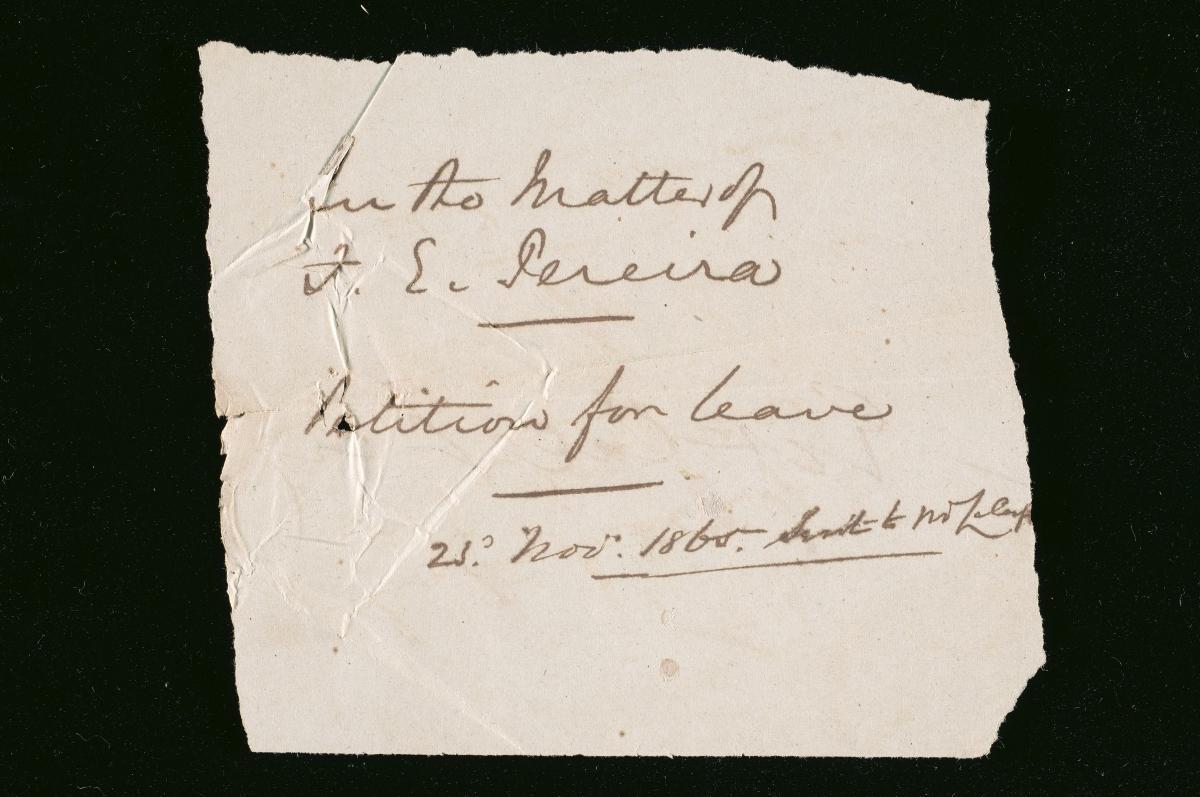 In the Matter of
F. E. Pereira
Petition for leave
Nov. 1865. Sent to Mr